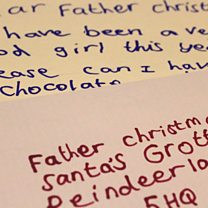 ar Father Christ
have been a ve
od girl this ye
ease can I hav
Chocolate
Father christm
Santa's Grott
Reindeerla
5HQ